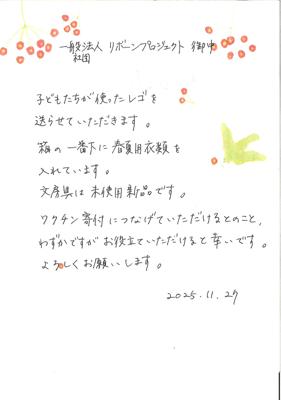 一般社団法人 リボーンプロジェクト 御中
子どもたちが使ったレゴを
送らせていただきます。
箱の一番下に春夏用衣類を
入れています。
文房具は未使用新品です。
ワクチン寄付につなげていただけるとのこと、
わずかですがお役立ていただけると幸いです。
よろしくお願いします。
2025.11.27